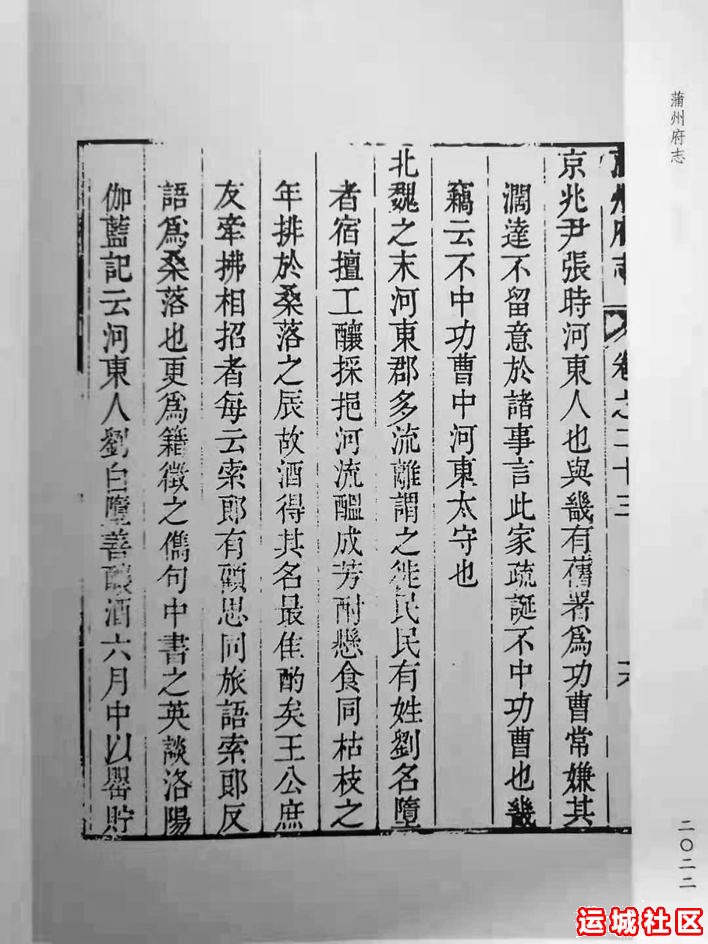 蒲州府志
蒲州府志 卷之二十三
京兆尹張時河東人也與畿有舊署爲功曹常嫌其
濶達不留意於諸事言此家疏誕不中功曹也畿
竊云不中功曹中河東太守也
北魏之末河東郡多流離謂之徙民民有姓劉名墮
者宿擅工釀採挹河流醞成芳酎懸食同枯枝之
年排於桑落之辰故酒得其名最佳酌矣王公庶
友牽拂相招者每云索郎有顧思同旅語索郎反
語爲桑落也更爲籍徵之儁句中書之英談洛陽
伽藍記云河東人劉白墮善釀酒六月中以罌貯
二〇二二
运城社区